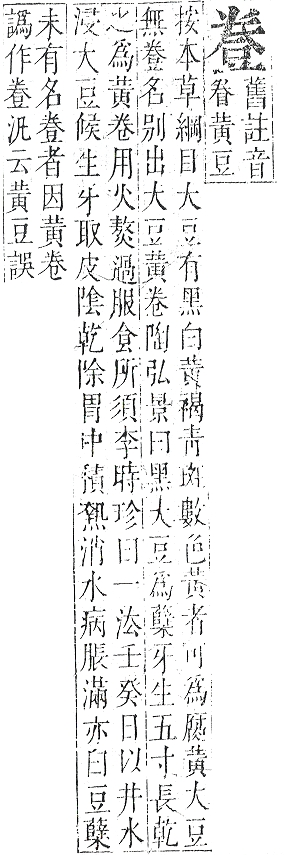 𧯦
舊註音
眷黃豆
按本草綱目大豆有黑白黃褐青斑數色黃者可爲腐黃大豆
無𧯦名别出大豆黃卷陶弘景曰黑大豆爲糵牙生五寸長乾
之爲黃卷用火熬過服食所須李時珍曰一法壬癸日以井水
浸大豆候生牙取皮陰乾除胃中積熱消水病脹滿亦曰豆糵
未有名𧯦者因黃卷
譌作𧯦汎云黃豆誤